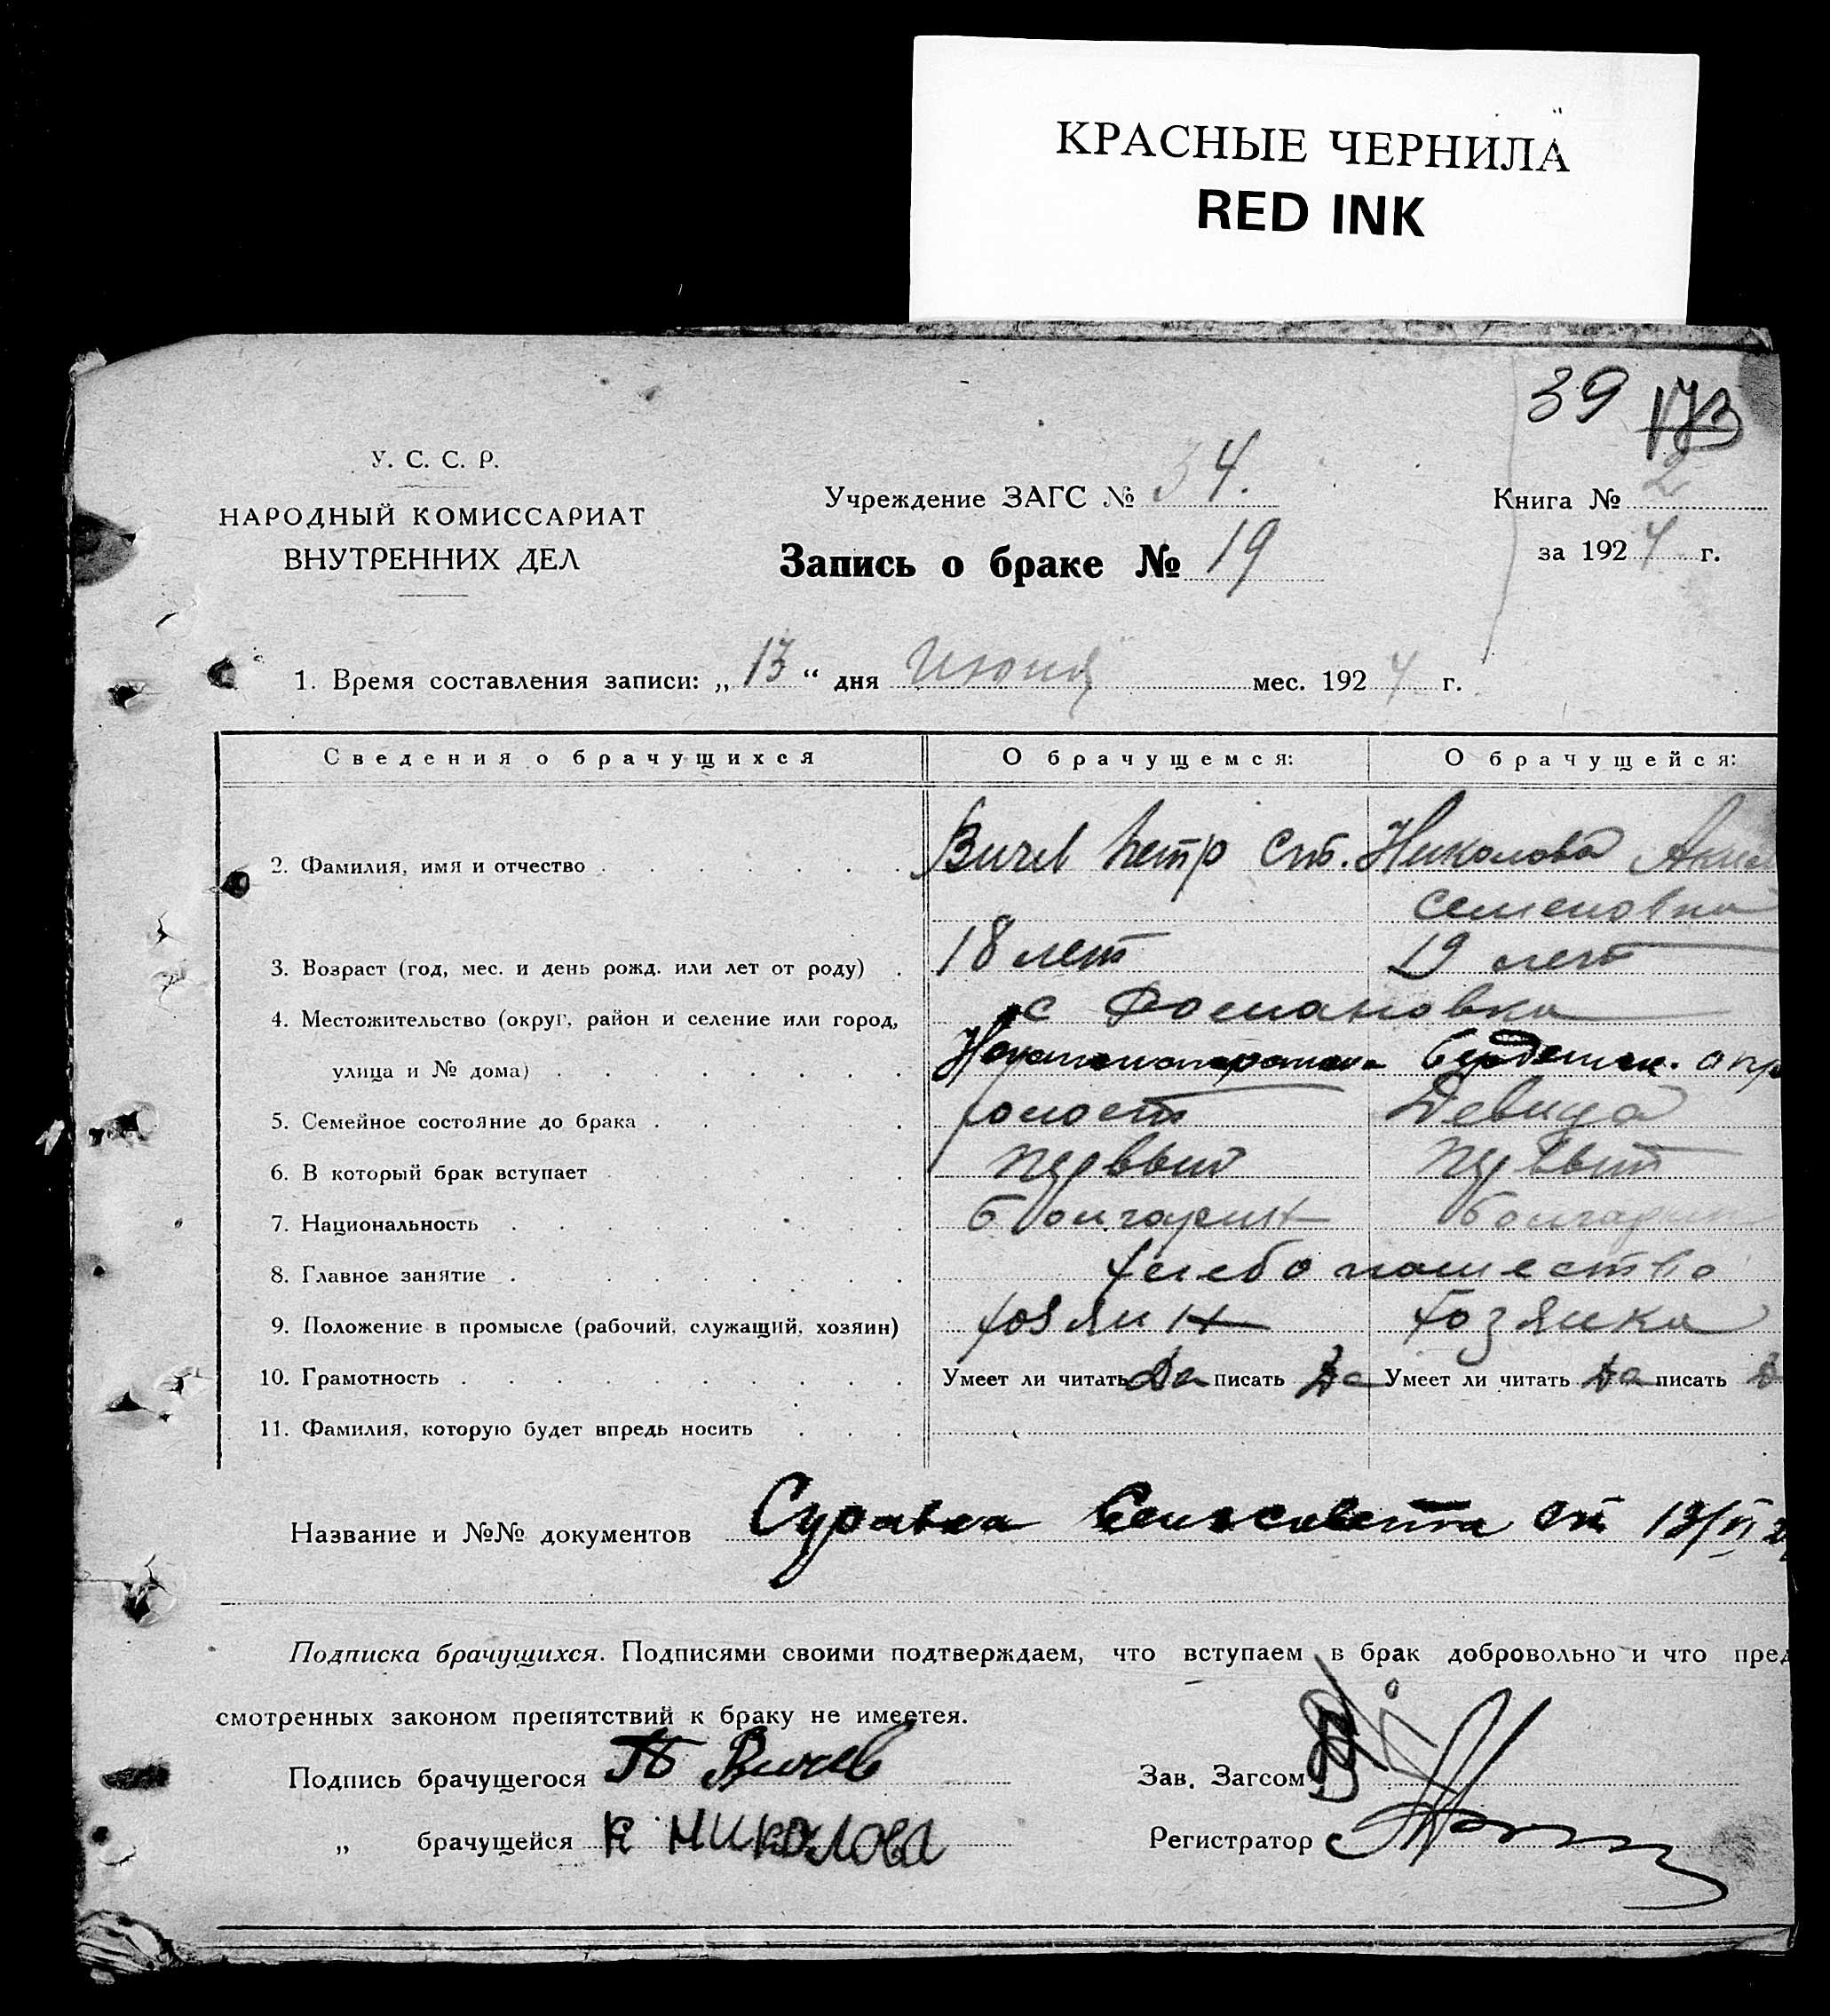 КРАСНЫЕ ЧЕРНИЛА
RED INK
39 173
У. С. С. Р.
НАРОДНЫЙ КОМИССАРИАТ
ВНУТРЕННИХ ДЕЛ
Учреждение ЗАГС № 34.
Книга № 2
Запись о браке № 19
за 1924 г.
1. Время составления записи: „ 13 “ дня Июня мес. 1924 г.
Сведения о брачущихся О брачущемся: О брачущейся:
2. Фамилия, имя и отчество Вичев Петр Ст. Николова
Семеновна
3. Возраст (год, мес. и день рожд. или лет от роду) 18 лет 19 лет
4. Местожительство (округ, район и селение или город, с
улица и № дома)
5. Семейное состояние до брака холост Девица
6. В который брак вступает первый первый
7. Национальность болгарин болгарка
8. Главное занятие хлебопашество
9. Положение в промысле (рабочий, служащий, хозяин) хозяин хозяйка
10. Грамотность Умеет ли читать Да писать Да Умеет ли читать Да писать Д
11. Фамилия, которую будет впредь носить
Название и №№ документов Справка Сельсовета от 13/VI
Подписка брачущихся. Подписями своими подтверждаем, что вступаем в брак добровольно и что пред
смотренных законом препятствий к браку не имеетея.
Подпись брачущегося П Вичев Зав. Загсом
„ брачущейся К Николова Регистратор